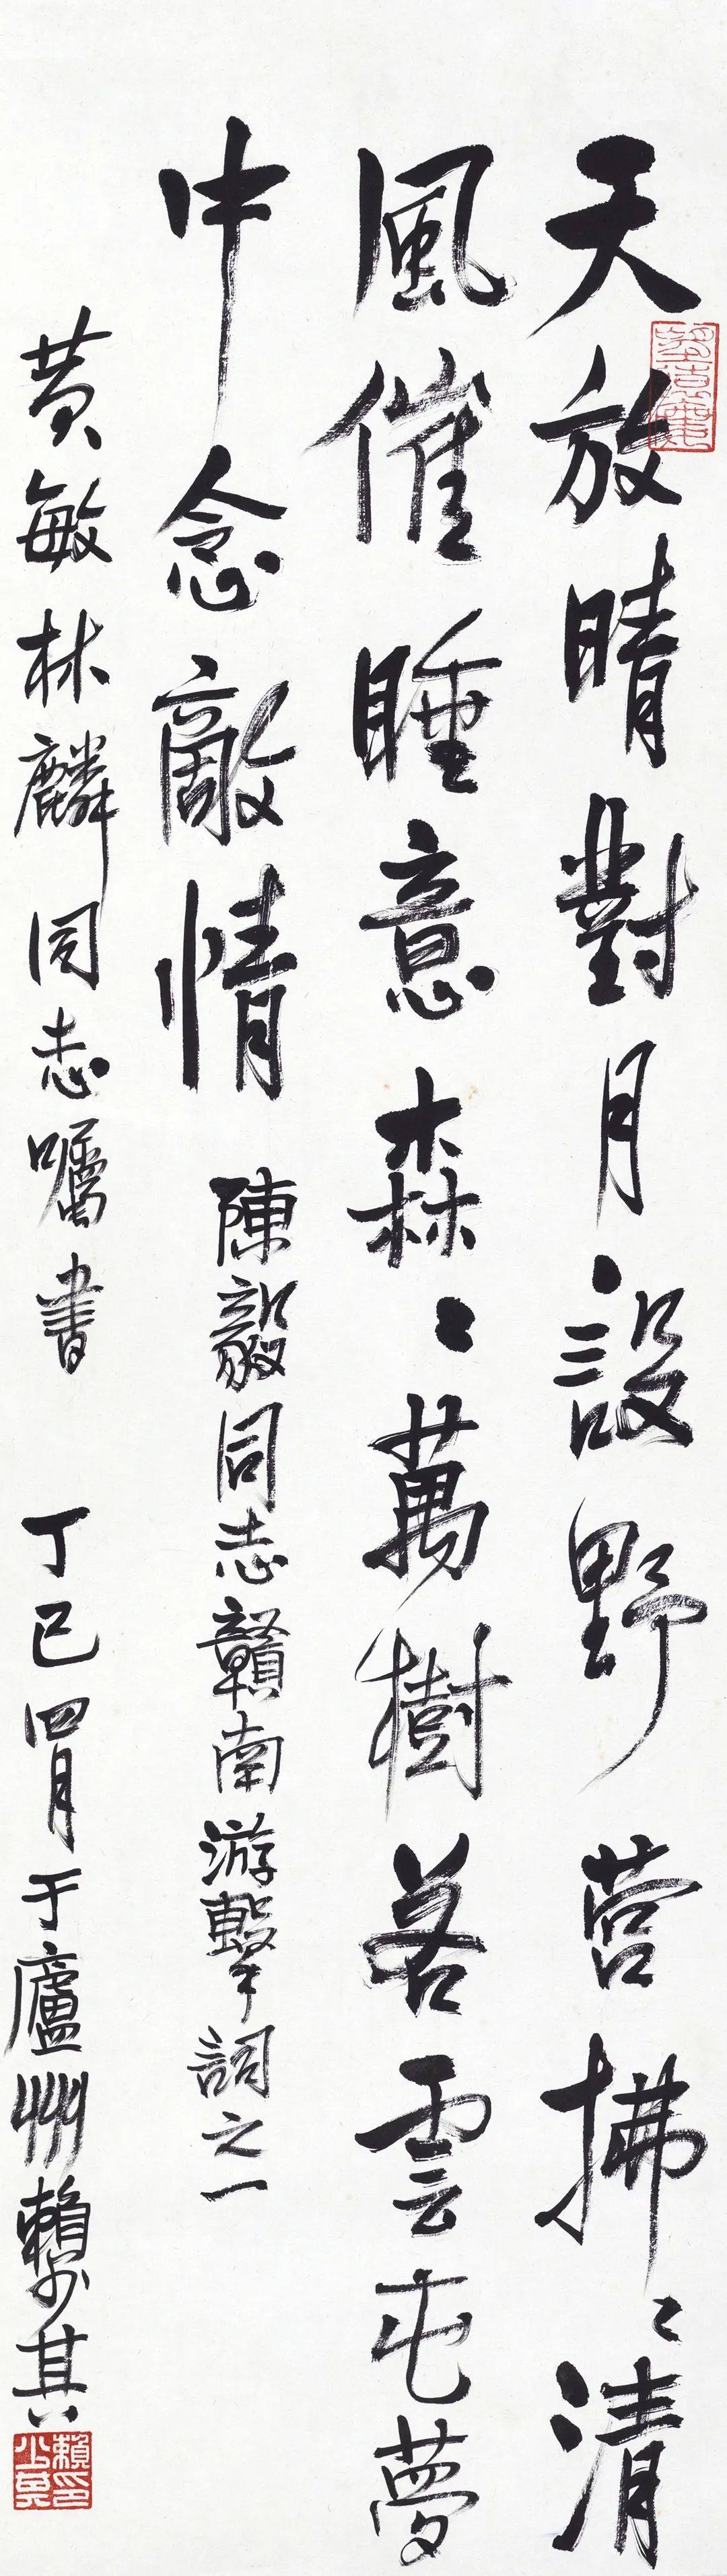 天放晴對月設野营拂〻清
風催睡意森〻萬樹若雲屯夢
中念敵情 陳毅同志贛南游擊詞之一
黄敏林麟同志囑書 丁巳四月于廬州賴少其
賴少其印